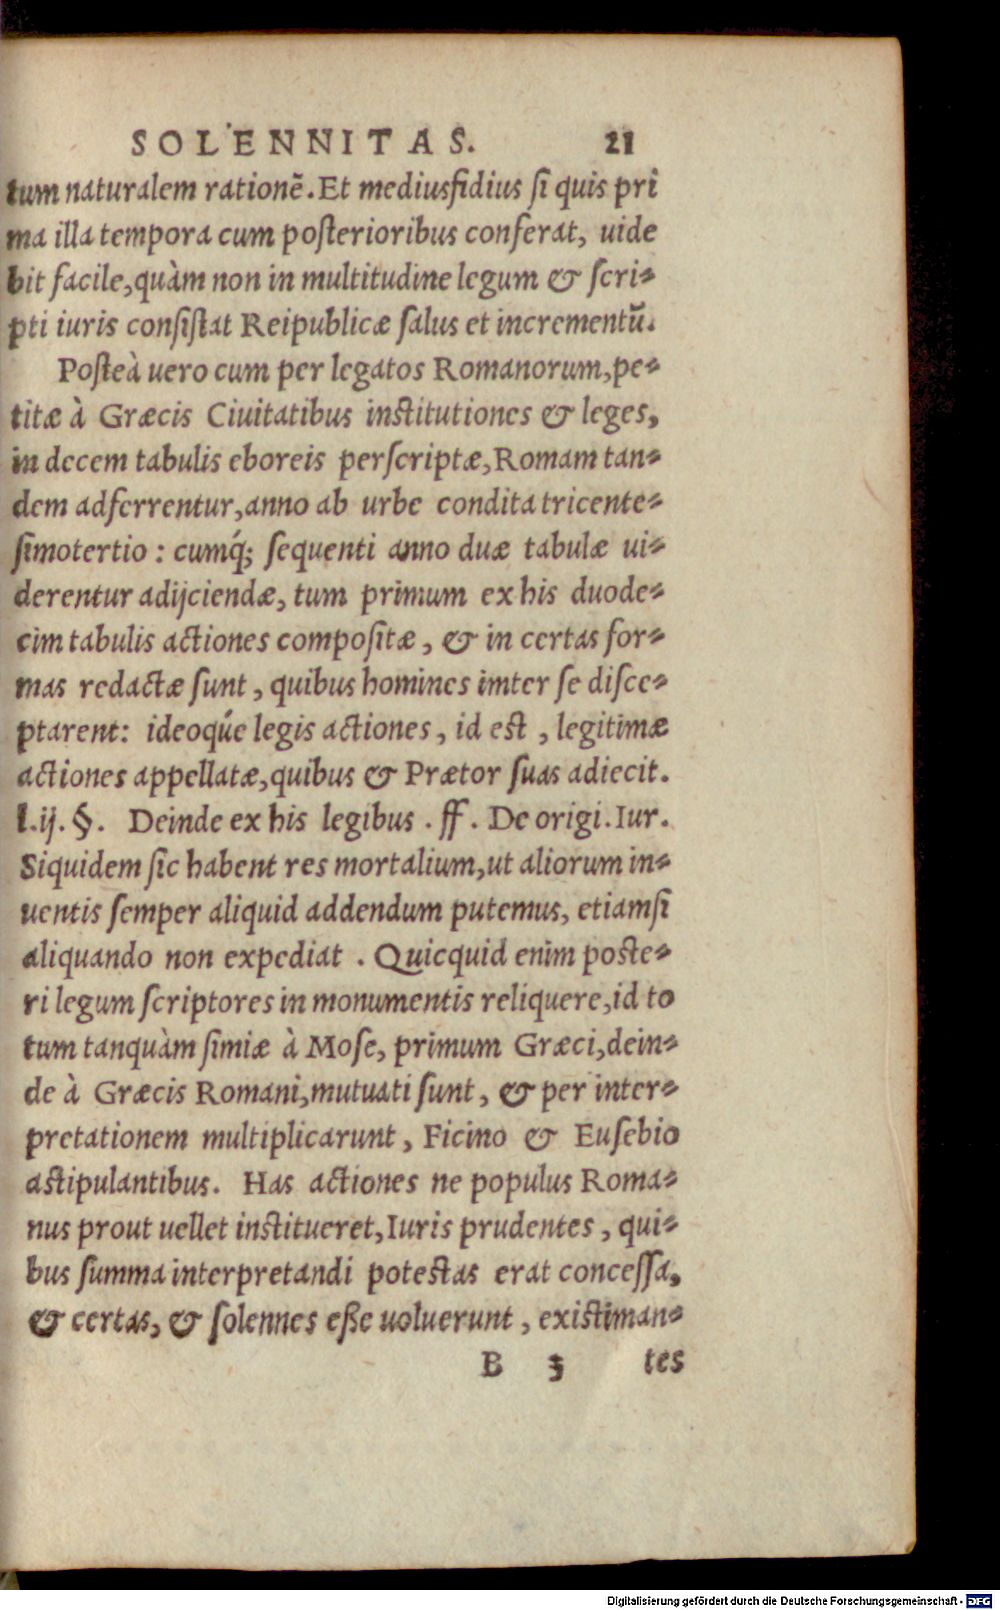 SOLENNITAS. 21
tum naturalem rationē. Et mediusfidius ſi quis pri
ma illa tempora cum poſterioribus conferat, uide
bit facile, quàm non in multitudine legum & ſcri-
pti iuris conſiſtat Reipublicæ ſalus et incrementū.
Poſteà uero cum per legatos Romanorum, pe-
titæ à Græcis Ciuitatibus inſtitutiones & leges,
in decem tabulis eboreis perſcriptæ, Romam tan-
dem adferrentur, anno ab urbe condita tricente-
ſimotertio: cumq́; ſequenti anno duæ tabulæ ui-
derentur adijciendæ, tum primum ex his duode-
cim tabulis actiones compoſitæ, & in certas for-
mas redactæ ſunt, quibus homines imter ſe diſce-
ptarent: ideoq́ue legis actiones, id eſt, legitimæ
actiones appellatæ, quibus & Prætor ſuas adiecit.
l.ij. §. Deinde ex his legibus. ff. De origi. Iur.
Siquidem ſic habent res mortalium, ut aliorum in-
uentis ſemper aliquid addendum putemus, etiamſi
aliquando non expediat. Quicquid enim poſte-
ri legum ſcriptores in monumentis reliquere, id to
tum tanquàm ſimiæ à Moſe, primum Græci, dein-
de à Græcis Romani, mutuati ſunt, & per inter-
pretationem multiplicarunt, Ficino & Euſebio
aſtipulantibus. Has actiones ne populus Roma-
nus prout uellet inſtitueret, Iuris prudentes, qui-
bus ſumma interpretandi poteſtas erat conceſſa,
& certas, & ſolennes eſſe uoluerunt, exiſtiman-
B 3 tes
Digitalisierung gefördert durch die Deutsche Forschungsgemeinschaft - DFG